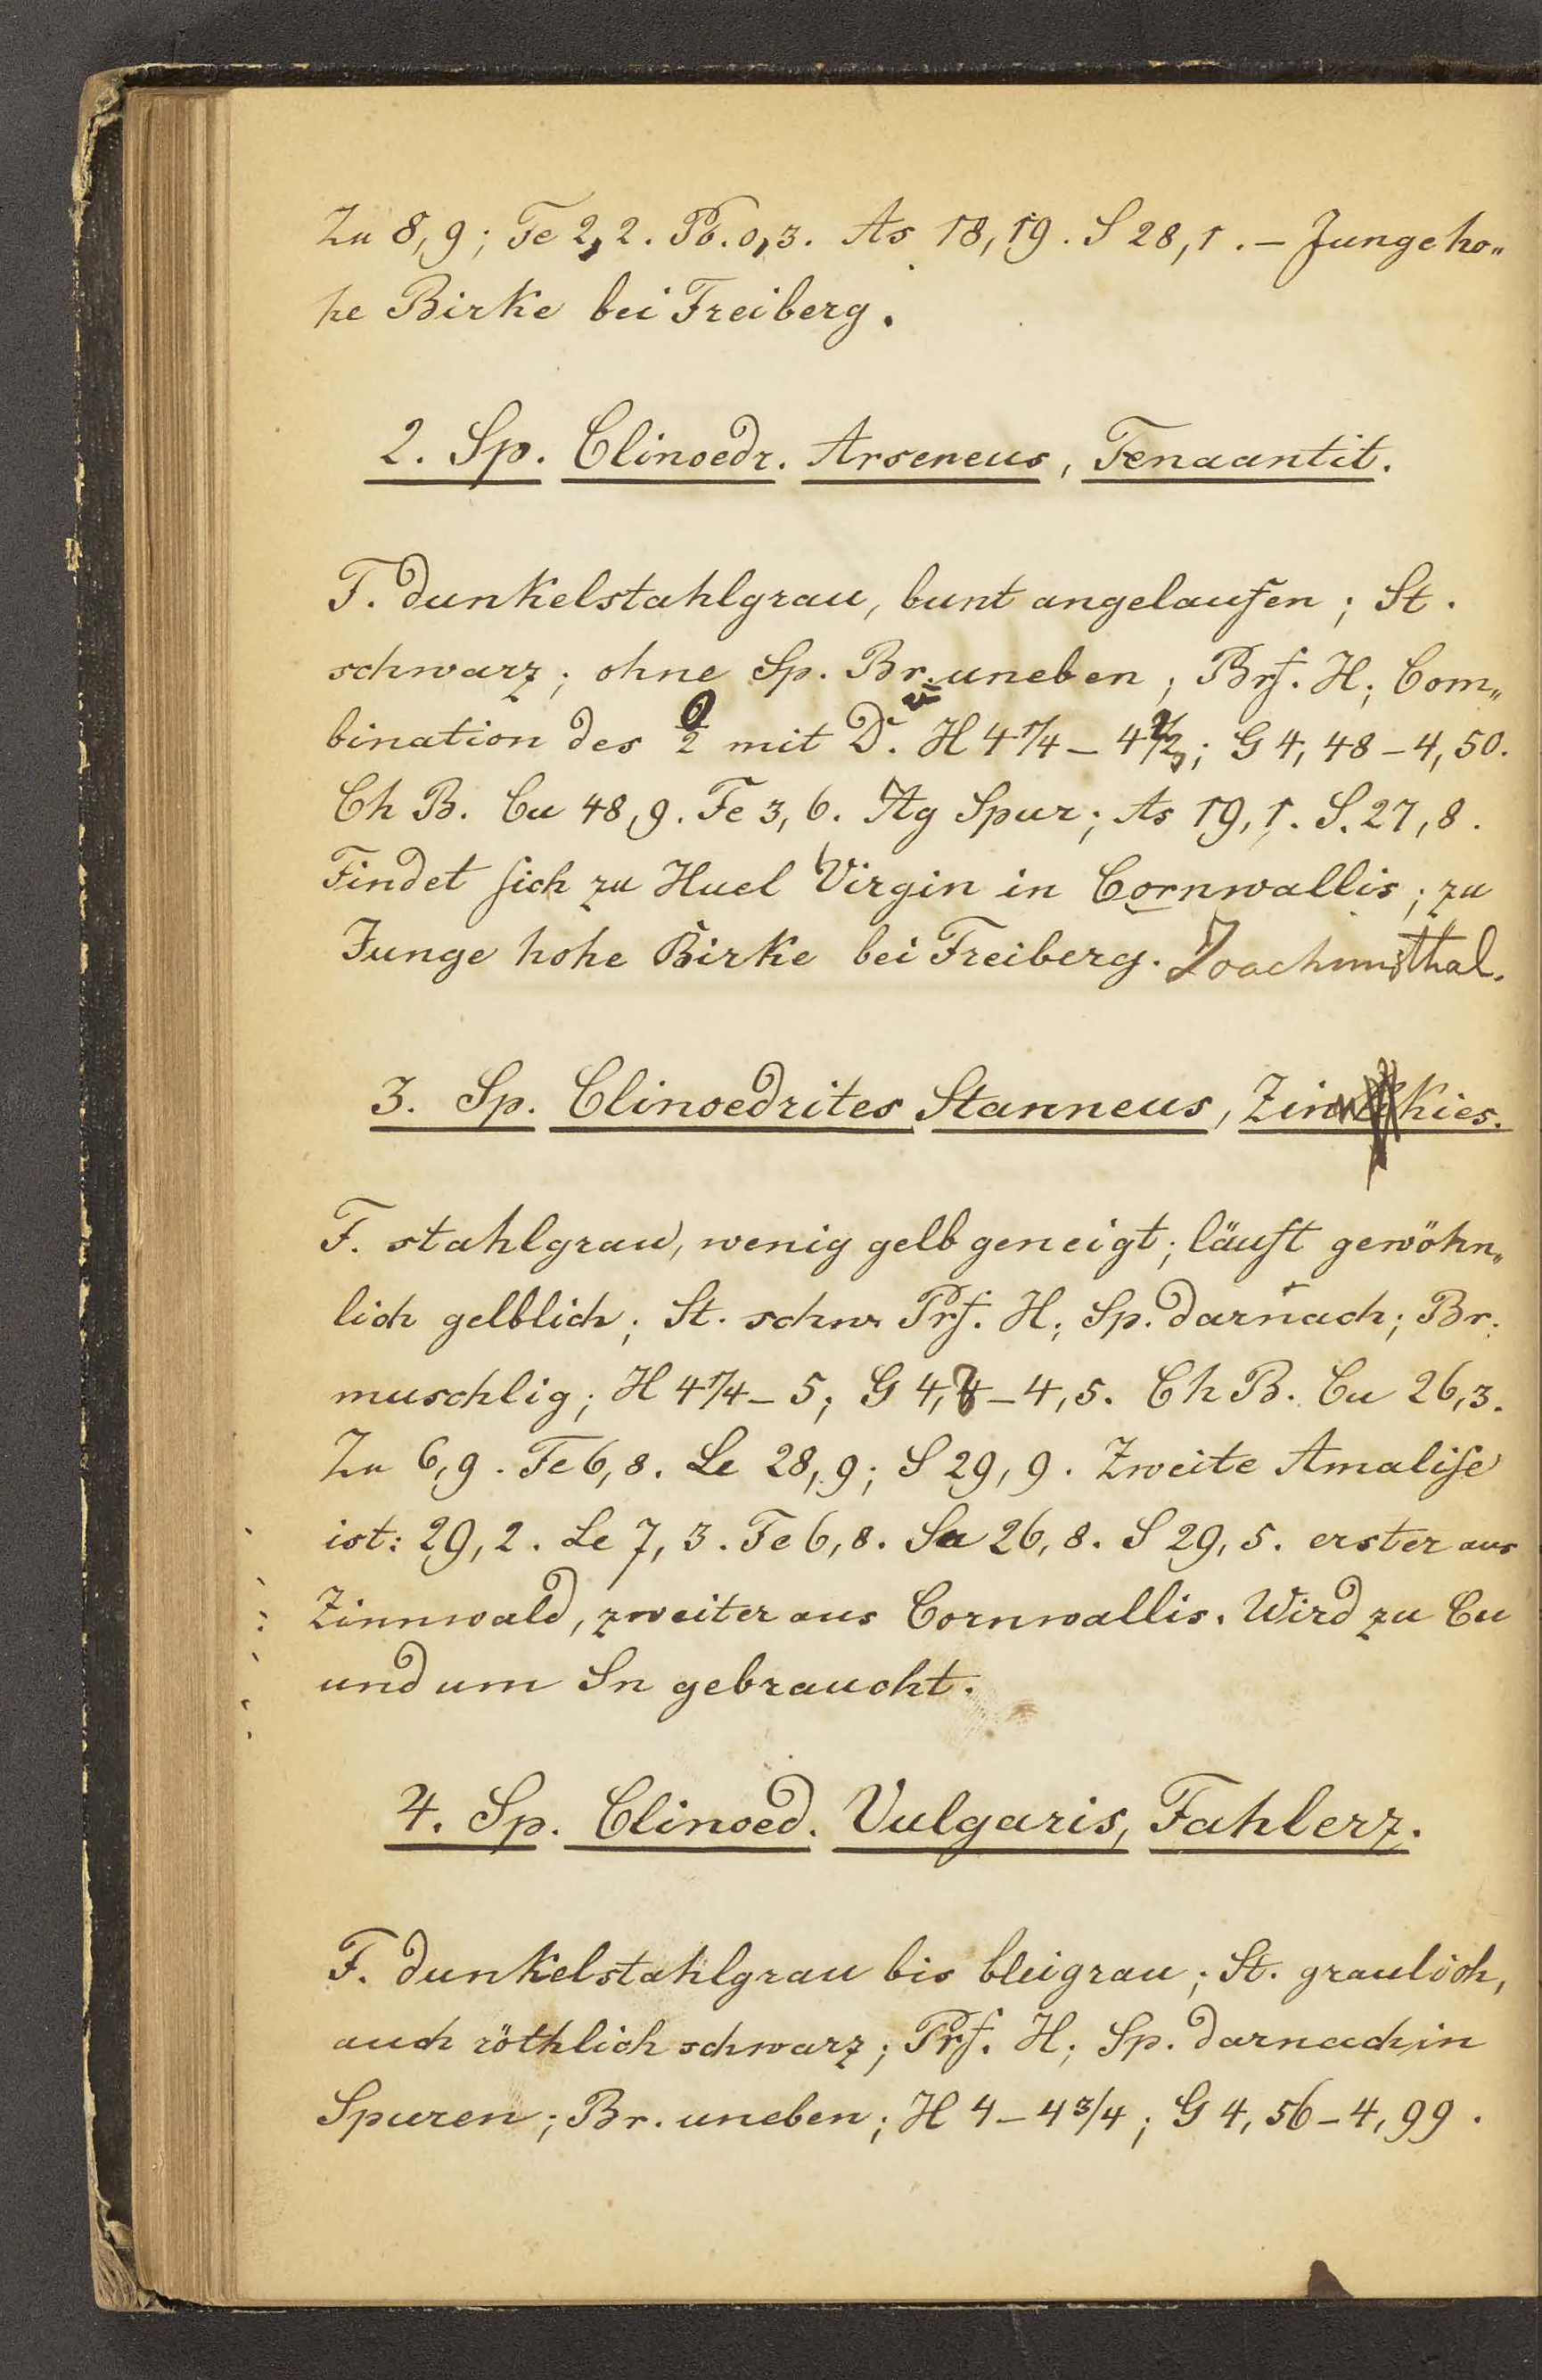 Zu 8,9; Fe 2,2. Pb. 0,3. As 18,19. S 28,1. – Junge ho„
he Birke bei Freiberg.
2. Sp. Clinoedr. Arseneus, Tenaantit.
F. dunkelstahlgrau, bunt angelaufen; St.
schwarz; ohne Sp. Br. uneben; Brf. H; Com„
bination des O/2 mit D. H 4 1/4 – 4 1/2; G 4,48 – 4,50.
Ch B. Cu 48,9. Fe 3,6. Ag Spur; As 19,1. S. 27,8.
Findet sich zu Huel Virgin in Cornwallis; zu
Junge hohe Birke bei Freiberg. Joachimsthal.
3. Sp. Clinoedrites Stanneus, Zinnkies.
F. stahlgrau, wenig gelb geneigt; läuft gewöhn„
lich gelblich; St. schw Prf. H; Sp. darnach; Br.
muschlig; H 4 1/4 – 5; G 4, – 4,5. Ch B. Cu 26,3.
Zu 6,9. Fe 6,8. Le 28,9; S 29,9. Zweite Amalise
ist: 29,2. Le 7,3. Fe 6,8. Sa 26,8. S 29,5. erster aus
Zinnwald, zweiter aus Cornwallis. Wird zu Cu
und um Sn gebraucht.
4. Sp. Clinoed. Vulgaris, Fahlerz.
F. dunkelstahlgrau bis bleigrau; St. graulich,
auch röthlich schwarz; Prf. H; Sp. darnach in
Spuren; Br. uneben; H 4 – 4 3/4; G 4,56 – 4,99.